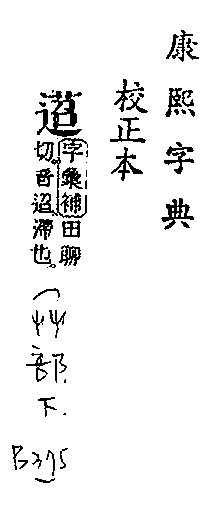 康熙字典
校正本
字彙補田聊
切音迢滯也
(艸部
下.
B375